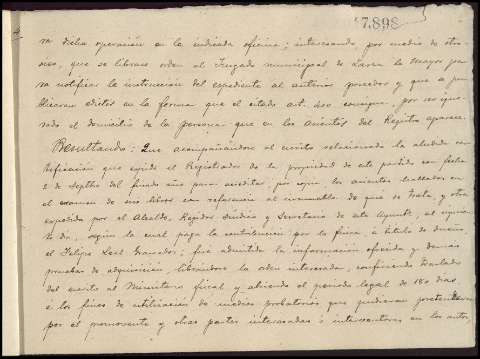 47.898
ra dicha operación en la indicada oficina; interesando, por medio de otro-
sies, que se librase orden al Juzgado municipal de la mayor pa
ra notificar la instrucción del expediente al anterior poseedor y que se pu
blicaran edictos en la forma que el citado art. 400 consigna, por ser igno-
rado el domicilio de la persona que en los asientos del Registro aparece.
Resultando: Que acompañándose al escrito relacionado la aludida cer
tificación que expide el Registrador de la propiedad de este partido con fecha
2 de Septbe del finado año para acreditar, por copia, los asientos hallados en
el examen de sus libros con referencia al inmueble de que se trata, y otra
expedida por el Alcalde, Regidor Síndico y Secretario de este Ayuntº, al siguien
te día, según la cual paga la contribución por la finca, á título de dueño,
el Felipe Leal Granados; fué admitida la información ofrecida y demás
pruebas de adquisición, librándose la orden interesada, confiriendo traslado
del escrito al Ministerio fiscal y abriendo el periodo legal de 180 días
á los fines de utilización de medios probatorios que pudieran pretenderse
por el promovente y otras partes interesadas ó interventoras en los autos,